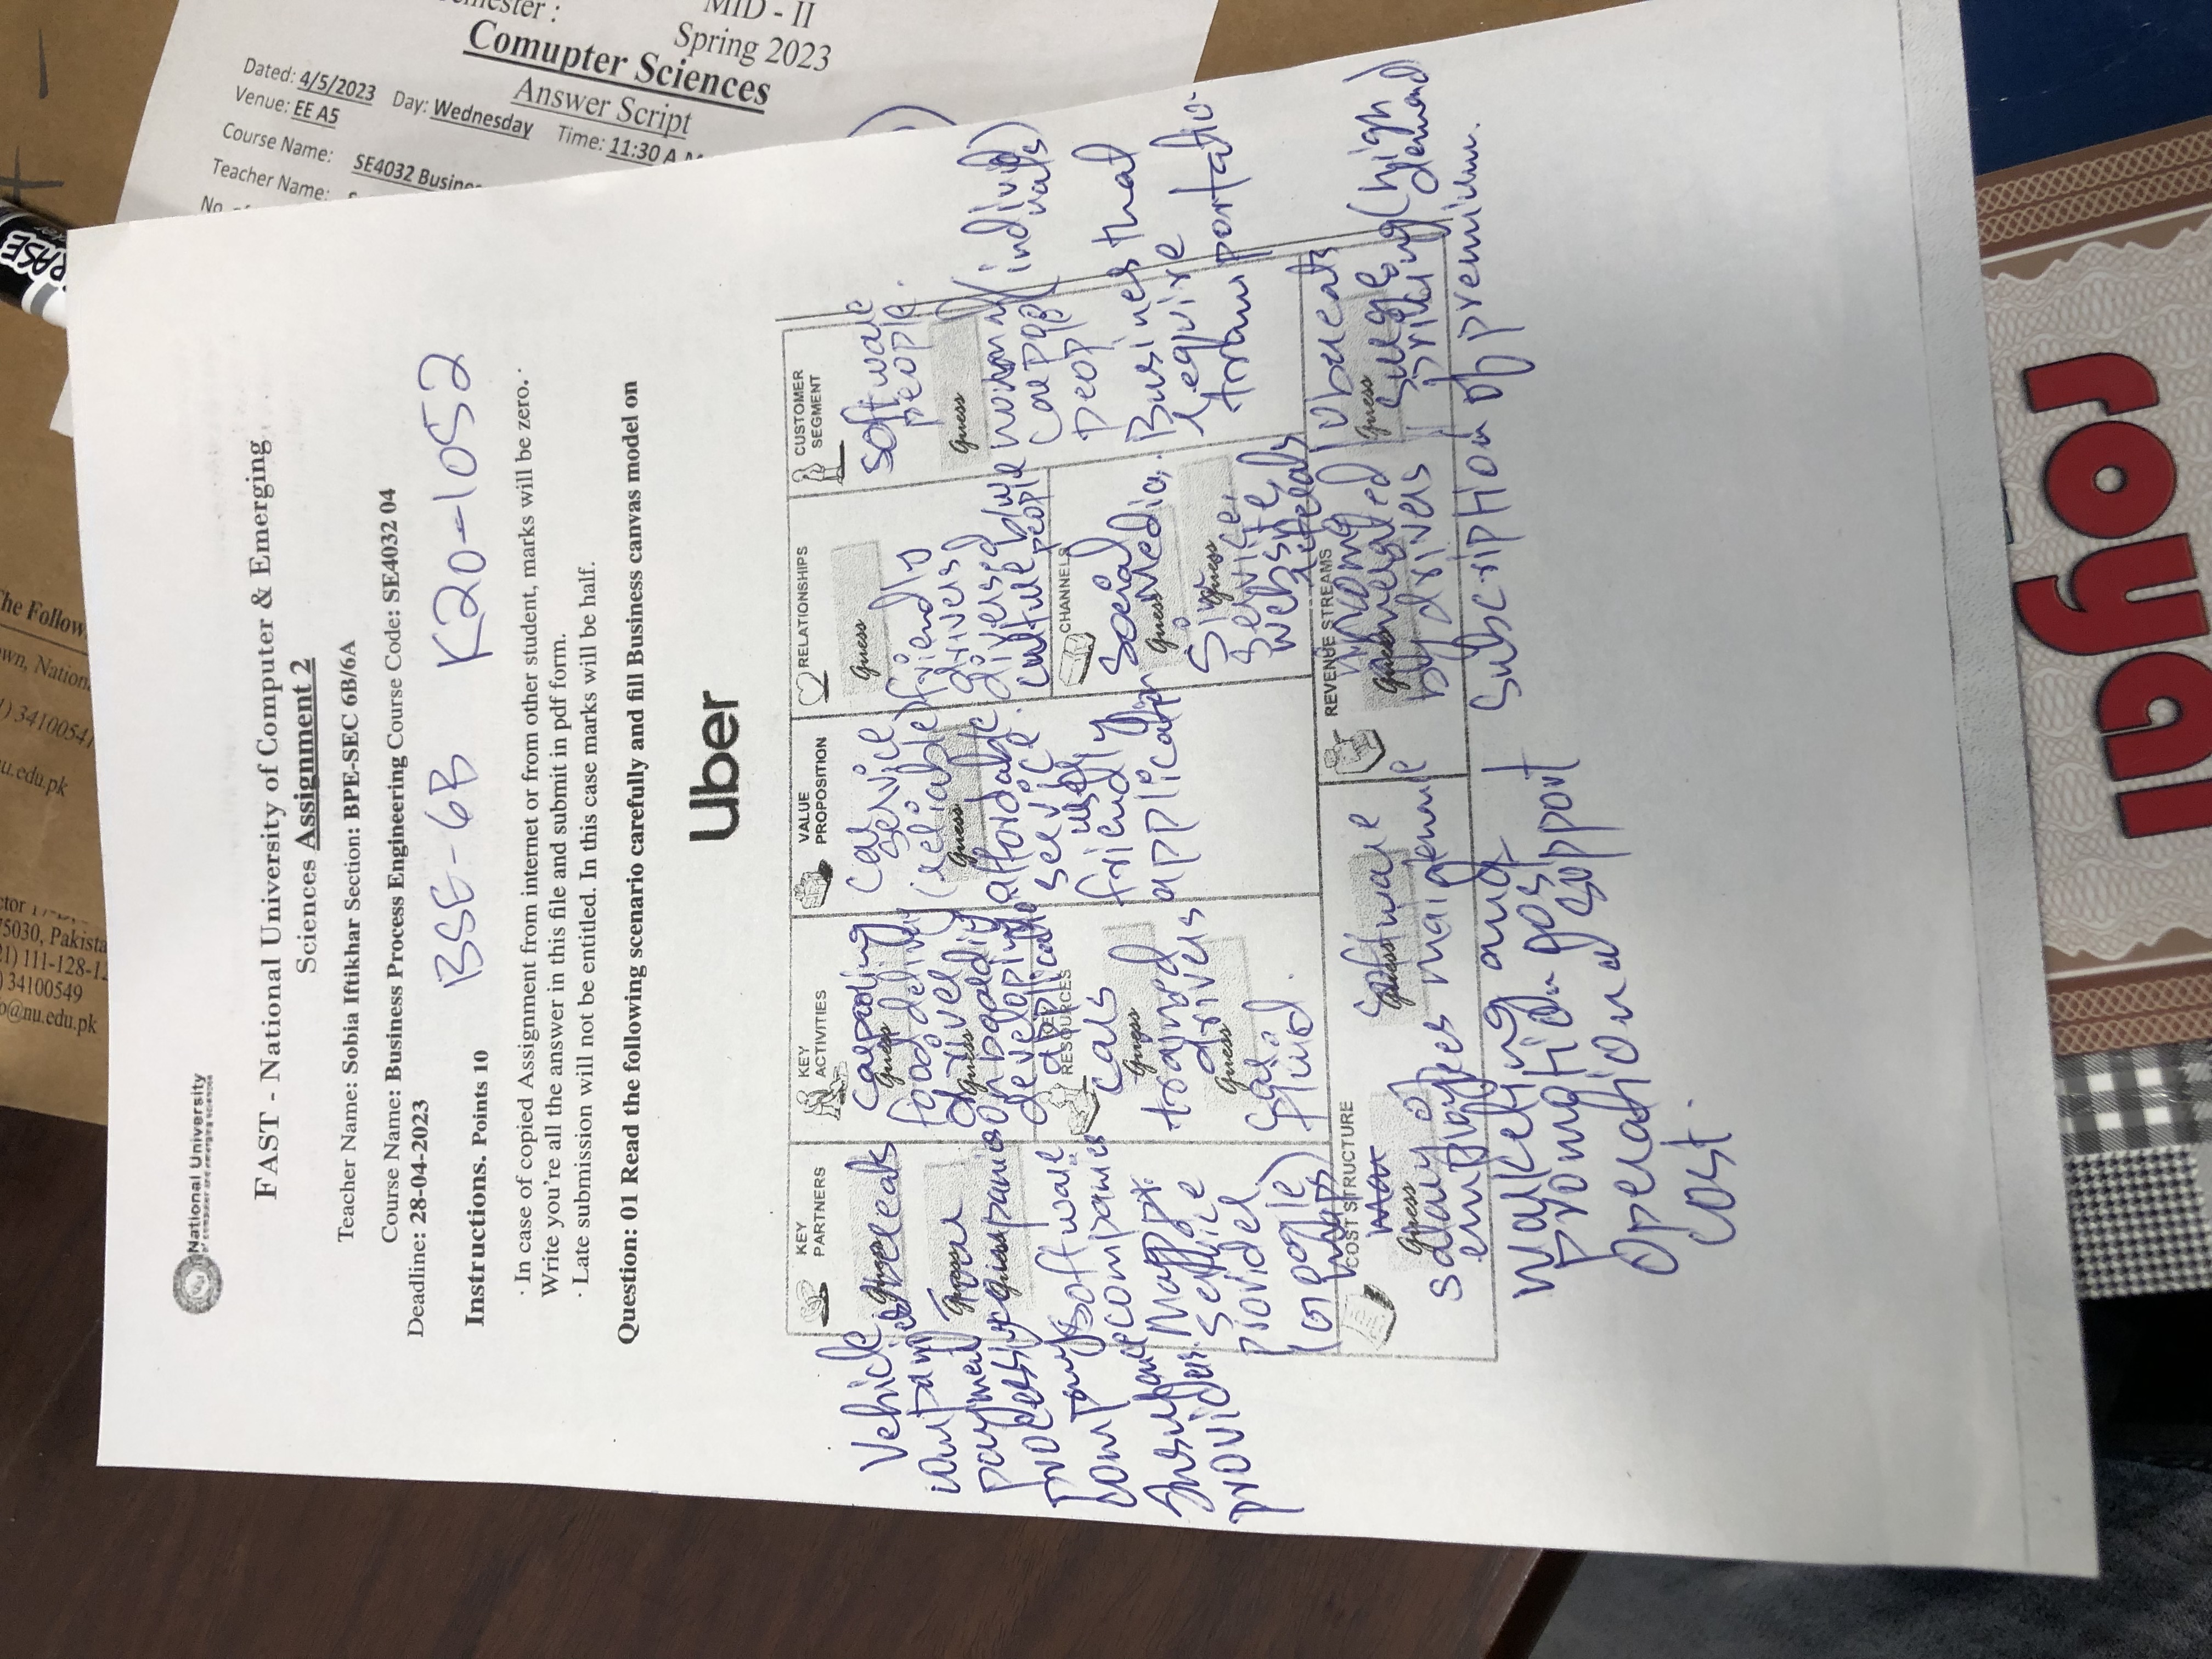 National University
of computer and emerging sciences
FAST - National University of Computer & Emerging
Sciences Assignment 2
Teacher Name: Sobia Iftikhar Section: BPE-SEC 6B/6A
Course Name: Business Process Engineering Course Code: SE4032 04
Deadline: 28-04-2023
BSE-6B K20-1052
Instructions. Points 10
· In case of copied Assignment from internet or from other student, marks will be zero. ·
Write you're all the answer in this file and submit in pdf form.
· Late submission will not be entitled. In this case marks will be half.
Question: 01 Read the following scenario carefully and fill Business canvas model on
Uber
KEY
PARTNERS
Guess
Guess
Guess
Vehicle
companies
payment
processing
company
Insurance
providers.
ubereats
companies
Software
companies
Mapp
service
provider
(Google
maps)
KEY
ACTIVITIES
Guess
Guess
Carpooling
food delivery
driver
onboarding
developing
application
RESOURCES
Guess
Guess
cars
trained
drivers
car
fluid.
VALUE
PROPOSITION
Guess
Car
service
(reliable)
affordable
service
user
friendly
application
RELATIONSHIPS
Guess
friendly
drivers
diversed
culture b/w
people
CHANNELS
Guess
Guess
Social
Media.
Sim
service,
website
referals
CUSTOMER
SEGMENT
Guess
software
people.
normal (individ
uals)
carpool
people
Business that
require
transportatio
COST STRUCTURE
Guess
Guess
salary of
employees
Software
maintenance
marketing and
promotion cost
operational support
cost.
REVENUE STREAMS
Guess
Guess
income
generated
by drivers
Ubereats
surge
pricing (high
demand)
Subscription of premium.
5030, Pakista
1) 111-128-1
34100549
o@nu.edu.pk
u.edu.pk
) 3410054
wn, Nation
he Follow
ERASE
+ -
Dated: 4/5/2023 Day: Wednesday Time: 11:30 A.M
Venue: EE A5
Course Name: SE4032 Busines
Teacher Name:
Answer Script
Computer Sciences
Spring 2023
MID - II
royal